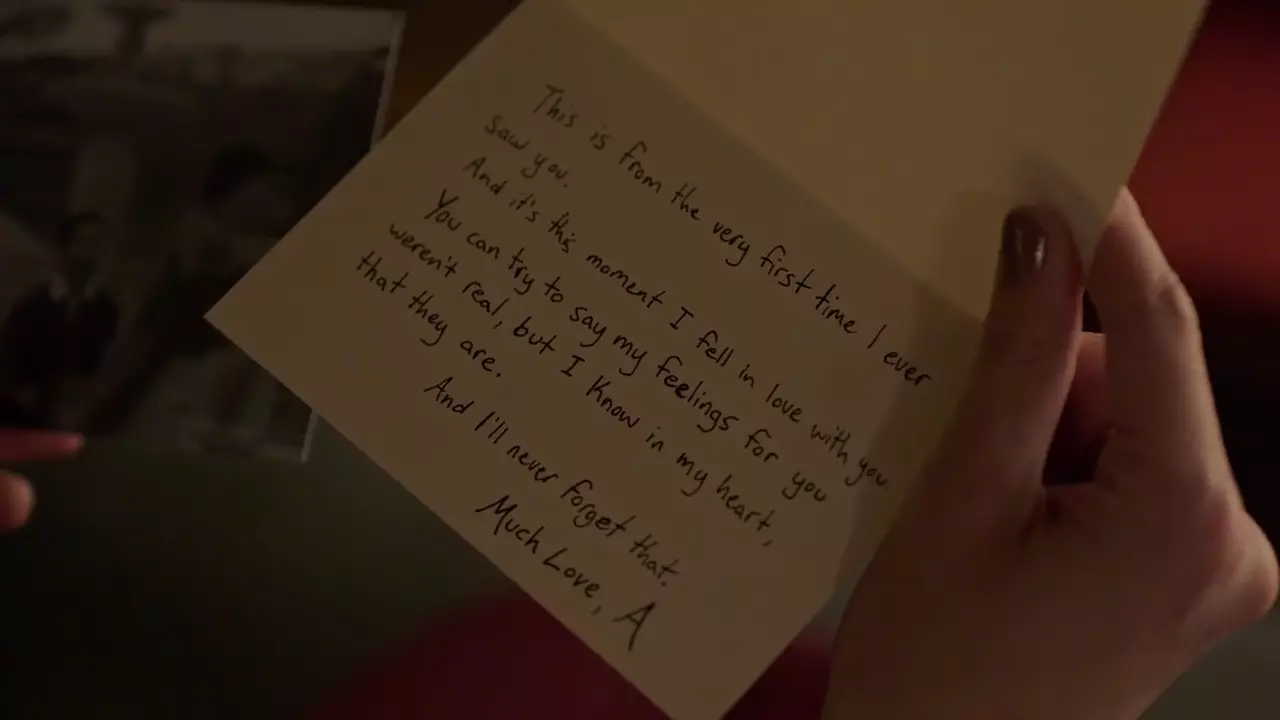 This is from the very first time I ever
saw you.
And it's this moment I fell in love with you.
You can try to say my feelings for you
weren't real, but I know in my heart,
that they are.
And I'll never forget that.
Much Love, A